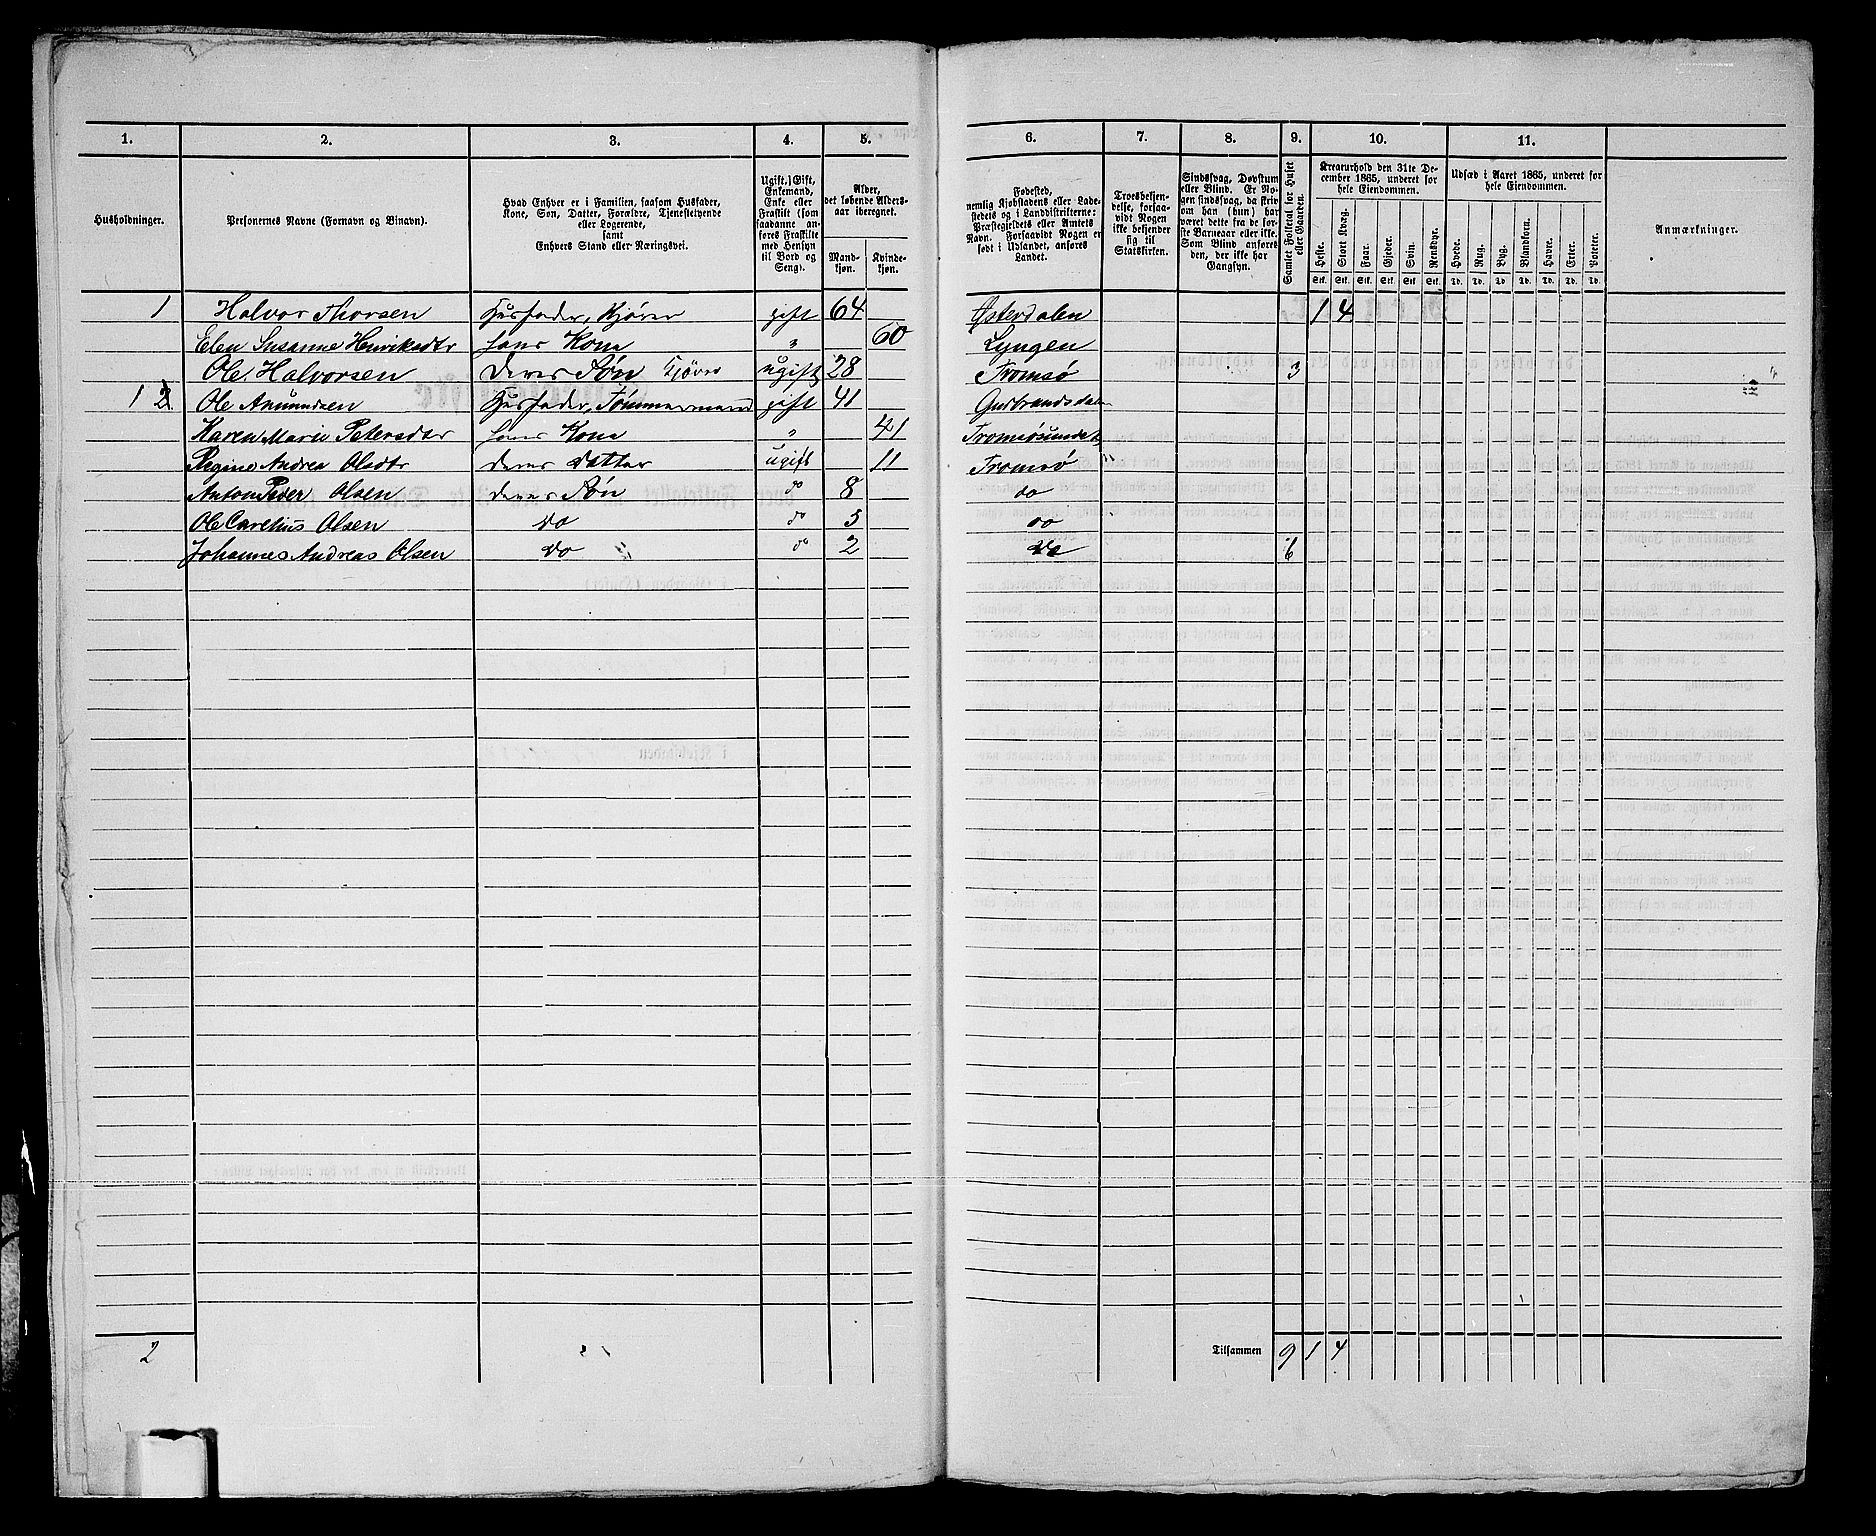 1. 2. 3. 4. 5. 6. 7. 8. 9. 10. 11.
Husholdninger.
Personernes Navne (Fornavn og Binavn).
Hvad Enhver er i Familien, saasom Husfader,
Kone, Søn, Datter, Forældre, Tjenestetyende
eller Logerende,
samt
Enhvers Stand eller Næringsvei.
Ugift, Gift,
Enkemand,
Enke eller
Fraskilt (som
saadanne an-
føres Fraskilte
med Hensyn
til Bord og
Seng).
Alder,
det løbende Alders-
aar iberegnet.
Mand-
kjøn.
Kvinde-
kjøn.
Fødested,
nemlig Kjøbstadens eller Lade-
stedets og i Landdistrikterne:
Præstegjeldets eller Amtets
Navn. Forsaavidt Nogen er
født i Udlandet, anføres
Landet.
Troesbekjen-
delse, forsaa-
vidt Nogen
ikke bekjender
sig til
Statskirken.
Sindssvag, Døvstum
eller Blind. Er No-
gen sindssvag, da skriv
om han (hun) har
været dette fra de før-
ste Barneaar eller ikke.
Som Blind anføres
den, der ikke har
Gangsyn.
Samlet Folketal for Huset
eller Gaarden.
Kreaturhold den 31te De-
cember 1865, underet for
hele Eiendommen.
Heste. Stort Kvæg. Faar. Gjeder. Svin. Rensdyr.
Stk. Stk. Stk. Stk. Stk. Stk.
Udsæd i Aaret 1865, underet for
hele Eiendommen.
Hvede. Rug. Byg. Blandkorn. Havre. Erter. Poteter.
Td. Td. Td. Td. Td. Td. Td.
Anmærkninger.
1 Halvor Thorsen Husfader, Kjører gift 64 Østerdalen 1 4
Elen Susanne Henriksdtr hans Kone " 60 Lyngen
Ole Halvorsen Deres Søn Kjører ugift 28 Tromsø 3
1 2 Ole Amundsen Husfader, Tømmermand gift 41 Gudbrandsdalen
Karen Marie Petersdtr hans Kone " 41 Tromsøsundet
Regine Andrea Olsdtr deres Datter ugift 11 Tromsø
Anton Peder Olsen deres Søn do 8 do
Ole Carelius Olsen do do 5 do
Johannes Andreas Olsen do do 2 do 6
2 Tilsammen 9 1 4